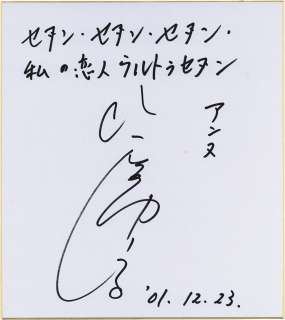 セヴン・セヴン・セヴン・
私の恋人ウルトラセヴン
アンヌ
'01.12.23.